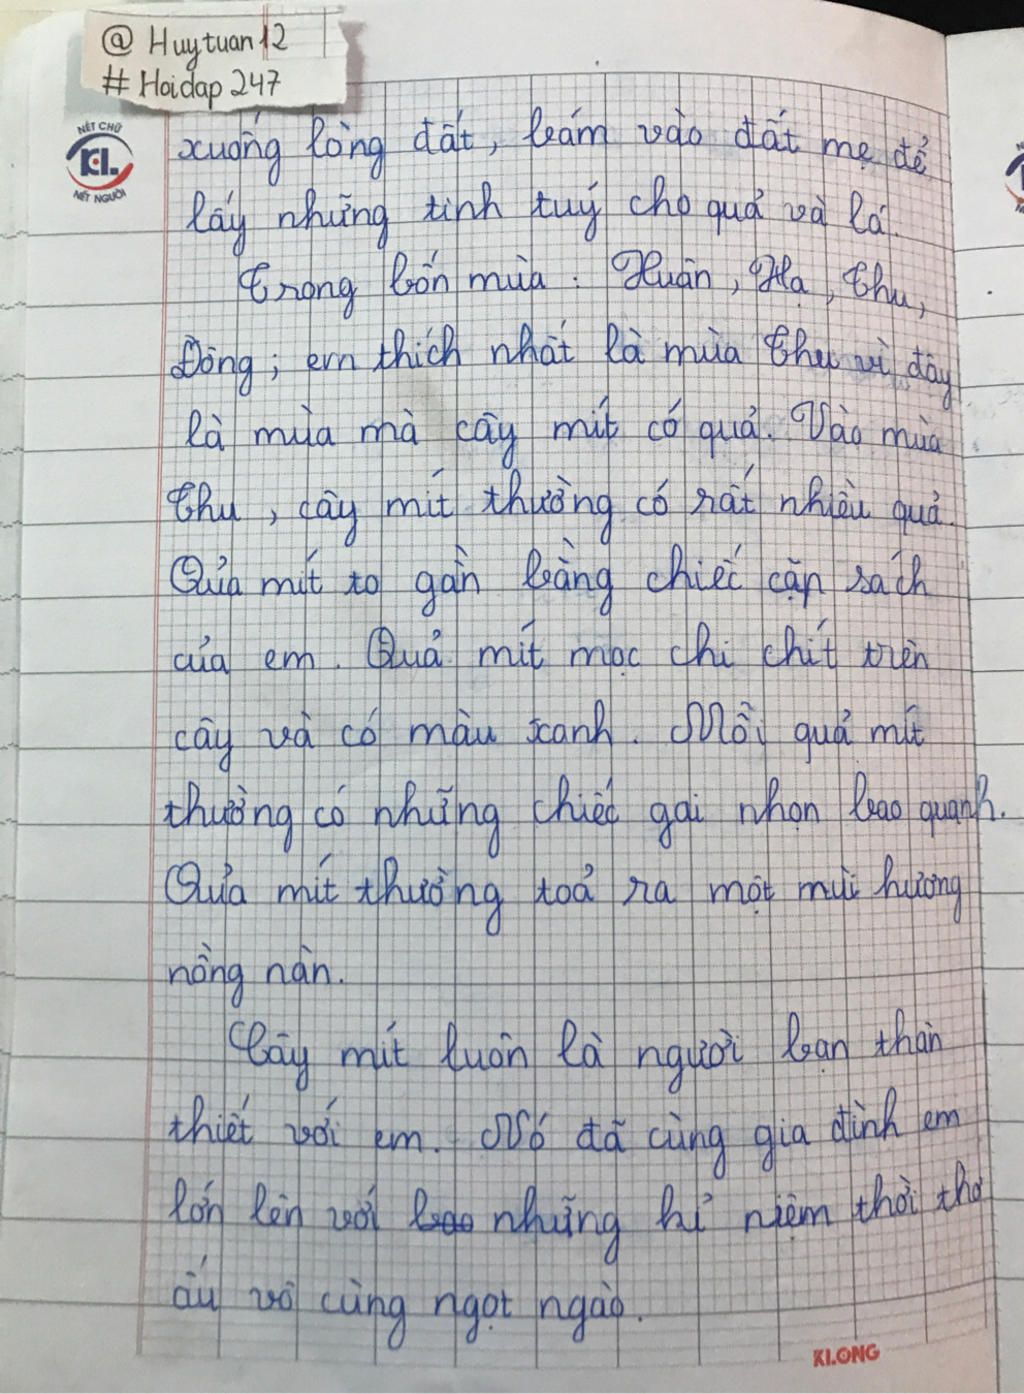 @ Huytuan12
# Hoidap 247
NÉT CHỮ
KL
NÉT NGƯỜI
xuống lòng đất, bám vào đất mẹ để
lấy những tinh tuý cho quả và lá.
Trong bốn mùa : Xuân, Hạ, Thu,
Đông; em thích nhất là mùa Thu vì đây
là mùa mà cây mít có quả. Vào mùa
Thu, cây mít thường có rất nhiều quả.
Quả mít to gần bằng chiếc cặp sách
của em. Quả mít mọc chi chít trên
cây và có màu xanh. Mỗi quả mít
thường có những chiếc gai nhọn bao quanh.
Quả mít thường toả ra một mùi hương
nồng nàn.
Cây mít luôn là người bạn thân
thiết với em. Nó đã cùng gia đình em
lớn lên với bao những kỉ niệm thời thơ
ấu vô cùng ngọt ngào.
KLONG